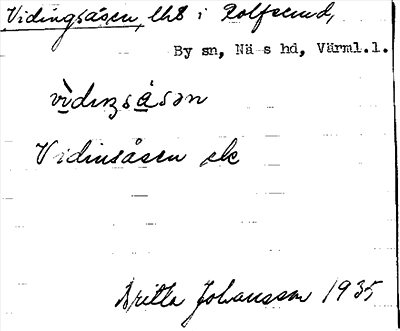 Vidingsåsen, lht i Rolfserud,
By sn, Nä s hd, Värml.l.
vìdıŋsåsən
Vidinsåsen elc
Britta Johansson 1935